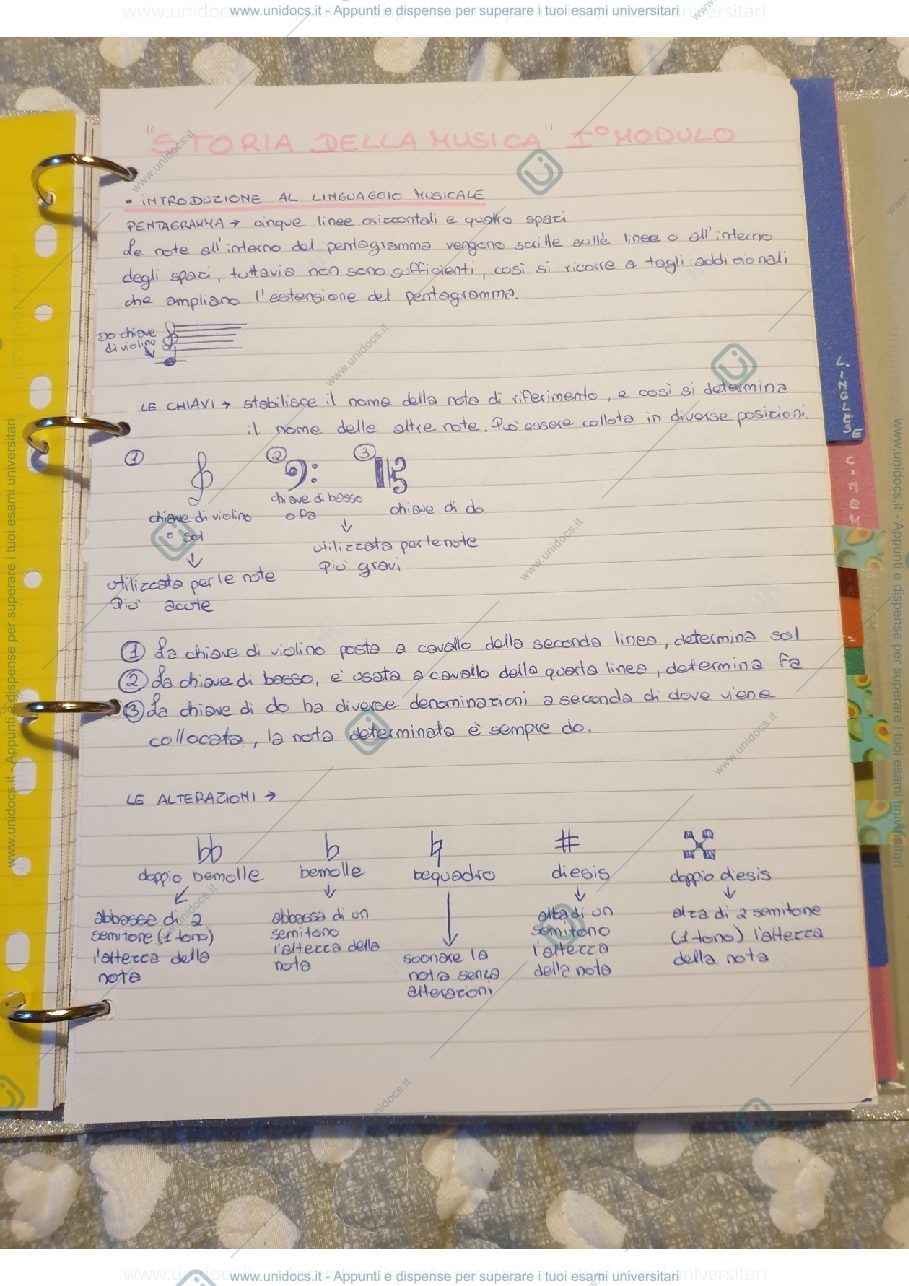 www.unidocs.it - Appunti e dispense per superare i tuoi esami universitari
"STORIA DELLA MUSICA" I° MODULO
• INTRODUZIONE AL LINGUAGGIO MUSICALE
PENTAGRAMMA → cinque linee orizzontali e quattro spazi
Le note all'interno del pentagramma vengono scritte sulle linee o all'interno
degli spazi, tuttavia non sono sufficienti, così si ricorse a tagli addizionali
che ampliano l'estensione del pentagramma.
Do chiave
di violino
LE CHIAVI → stabilisce il nome della nota di riferimento, e così si determina
il nome delle altre note. Può essere collota in diverse posizioni.
① ② ③
chiave di violino
o sol
chiave di basso
o fa
chiave di do
utilizzata per le note
più acute
utilizzata per le note
più gravi
① La chiave di violino posta a cavallo della seconda linea, determina sol
② La chiave di basso, e' usata a cavallo della quarta linea, determina Fa
③ La chiave di do ha diverse denominazioni a seconda di dove viene
collocata, la nota determinata è sempre do.
LE ALTERAZIONI →
bb b ♮ # x
doppio bemolle bemolle bequadro diesis doppio diesis
abbassa di 2
semitone (1 tono)
l'altezza della
nota
abbassa di un
semitono
l'altezza della
nota
suonare la
nota senza
alterazioni
alza di un
semitono
l'altezza
della nota
alza di 2 semitone
(1 tono) l'altezza
della nota
L. INGLESE
www.unidocs.it - Appunti e dispense per superare i tuoi esami universitari
www.unidocs.it - Appunti e dispense per superare i tuoi esami universitari
www.unidocs.it - Appunti e dispense per superare i tuoi esami universitari